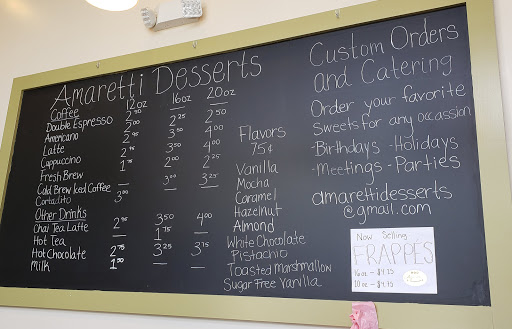 Amaretti Desserts
12oz 16oz 20oz
Coffee
Double Espresso 2⁵⁰
Americano 2⁰⁰ 2²⁵ 2⁵⁰
Latte 2⁹⁵ 3⁵⁰ 4⁰⁰
Cappuccino 2⁹⁵ 3⁵⁰ 4⁰⁰
Fresh Brew 1⁷⁵ 2⁰⁰ 2²⁵
Cold Brewed Coffee — 3⁰⁰ 3²⁵
Cortadito 3⁰⁰ — —
Other Drinks
Chai Tea Latte 2⁹⁵ 3⁵⁰ 4⁰⁰
Hot Tea — 1⁷⁵ —
Hot Chocolate 2⁷⁵ 3²⁵ 3⁷⁵
Milk 1⁵⁰ — —
Flavors
75¢
Vanilla
Mocha
Caramel
Hazelnut
Almond
White Chocolate
Pistachio
Toasted Marshmallow
Sugar Free Vanilla
Custom Orders
and Catering
Order your favorite
Sweets for any occassion
-Birthdays -Holidays
-Meetings -Parties
amarettidesserts
@gmail.com
Now Selling
FRAPPES
16oz - $4.25
20oz - $4.75